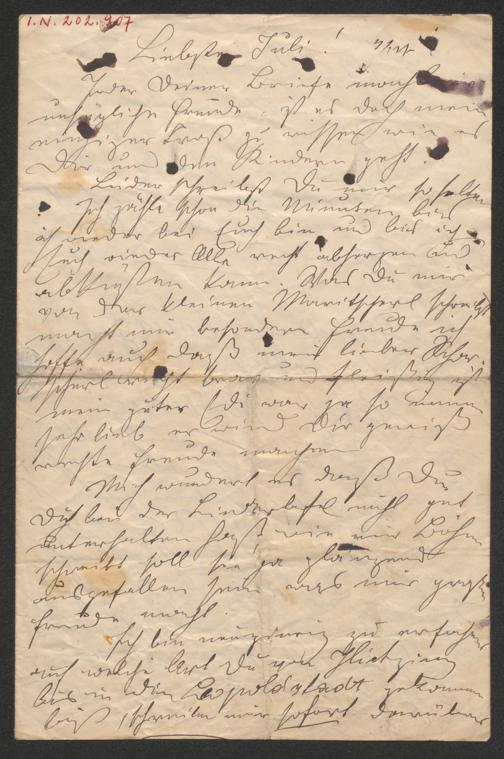 I.N. 202.907
Liebste Juli!
Jeder Deiner Briefe macht mir
unsägliche Freude, ist es doch mein
einziger Trost zu wissen wie es
Dir und den Kindern geht.
Leider schreibst Du mir so selten
Ich zähle schon die Minuten bis
ich wieder bei Euch bin und bis ich
Euch wieder Alle recht abherzen und
abküssen kann. Was Du mir
von der kleinen Maritscherl schreibst
macht mir besondere Freude ich
hoffe auch daß mein lieber
recht brav und fleißig ist
mein guter Edi war ja so immer
sehr lieb er wird Dir gewiß
rechte Freude machen
Mich wundert es daß Du
Dich bei der Liedertafel nicht gut
unterhalten hast wie mir Böhm
schreibt soll sie ja glänzend
ausgefallen sein was mir große
Freude macht.
Ich bin neugierig zu erfahren
auf welche Art Du von Hietzing
bis in die Leopoldstadt gekommen
bist, schreibe mir sofort darüber